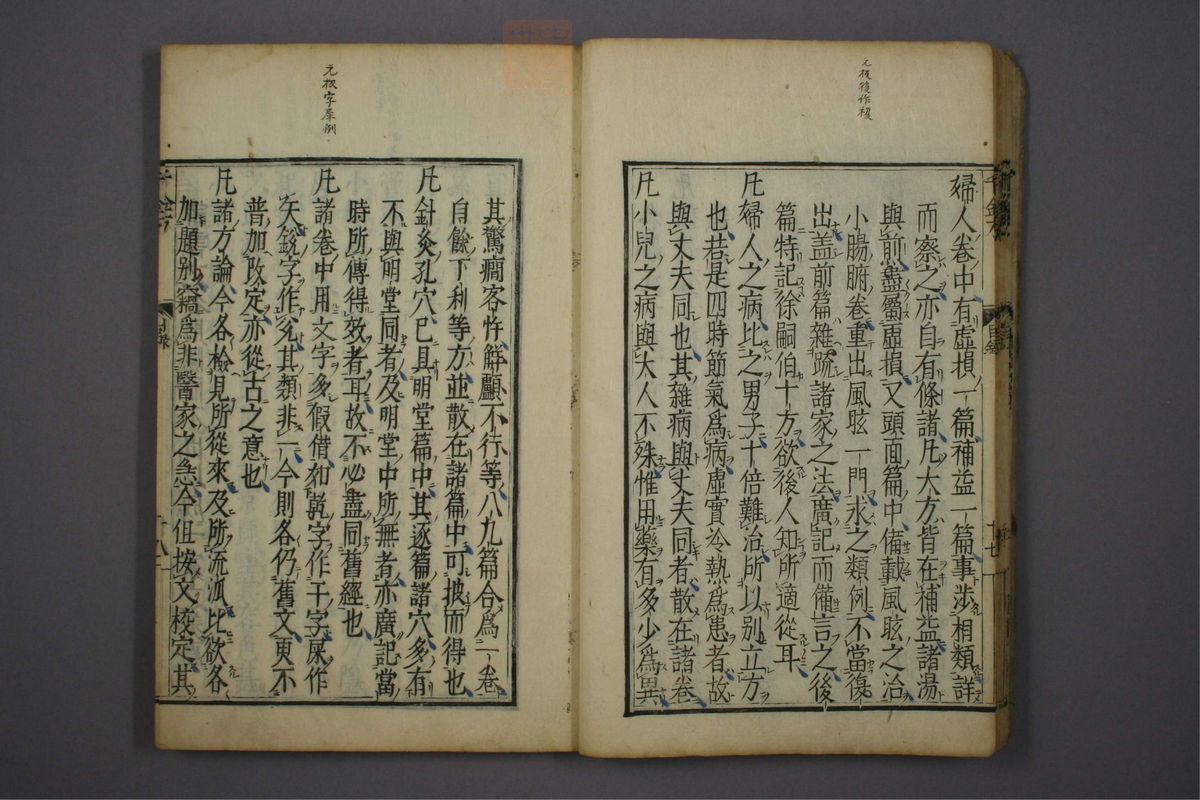 元板後作複
婦人卷中有虛損一篇補益一篇事涉相類詳
而察之亦自有條諸凡大方皆在補益諸湯
與前蠱屬虛損又頭面篇中備載風眩之治
小腸腑卷重出風眩一門永之類例不當復
出蓋前篇雜疏諸家之法廣記而備言之後
篇特記徐嗣伯十方欲後人知所適從耳
凡婦人之病比之男子十倍難治所以別立方
也若是四時節氣爲病虛實冷熱爲患者故
與丈夫同也其雜病與丈夫同者散在諸卷
凡小兒之病與大人不殊惟用藥有多少爲異
元板字屎例
其驚癇客忤解顱不行等八九篇合爲一卷
自餘下利等方並散在諸篇中可披而得也
凡針灸孔穴已具明堂篇中其逐篇諸穴多有
不與明堂同者及明堂中所無者亦廣記當
時所傳得效者耳故不必盡同舊經也
凡諸卷中用文字多假借如乾字作干字屎作
矢銳字作兌其類非一今則各仍舊文更不
普加改定亦從古之意也
凡諸方論今各檢見所從來及所流派比欲各
加題別竊爲非醫家之急今但按文校定其
千金方
目錄
十七
十八